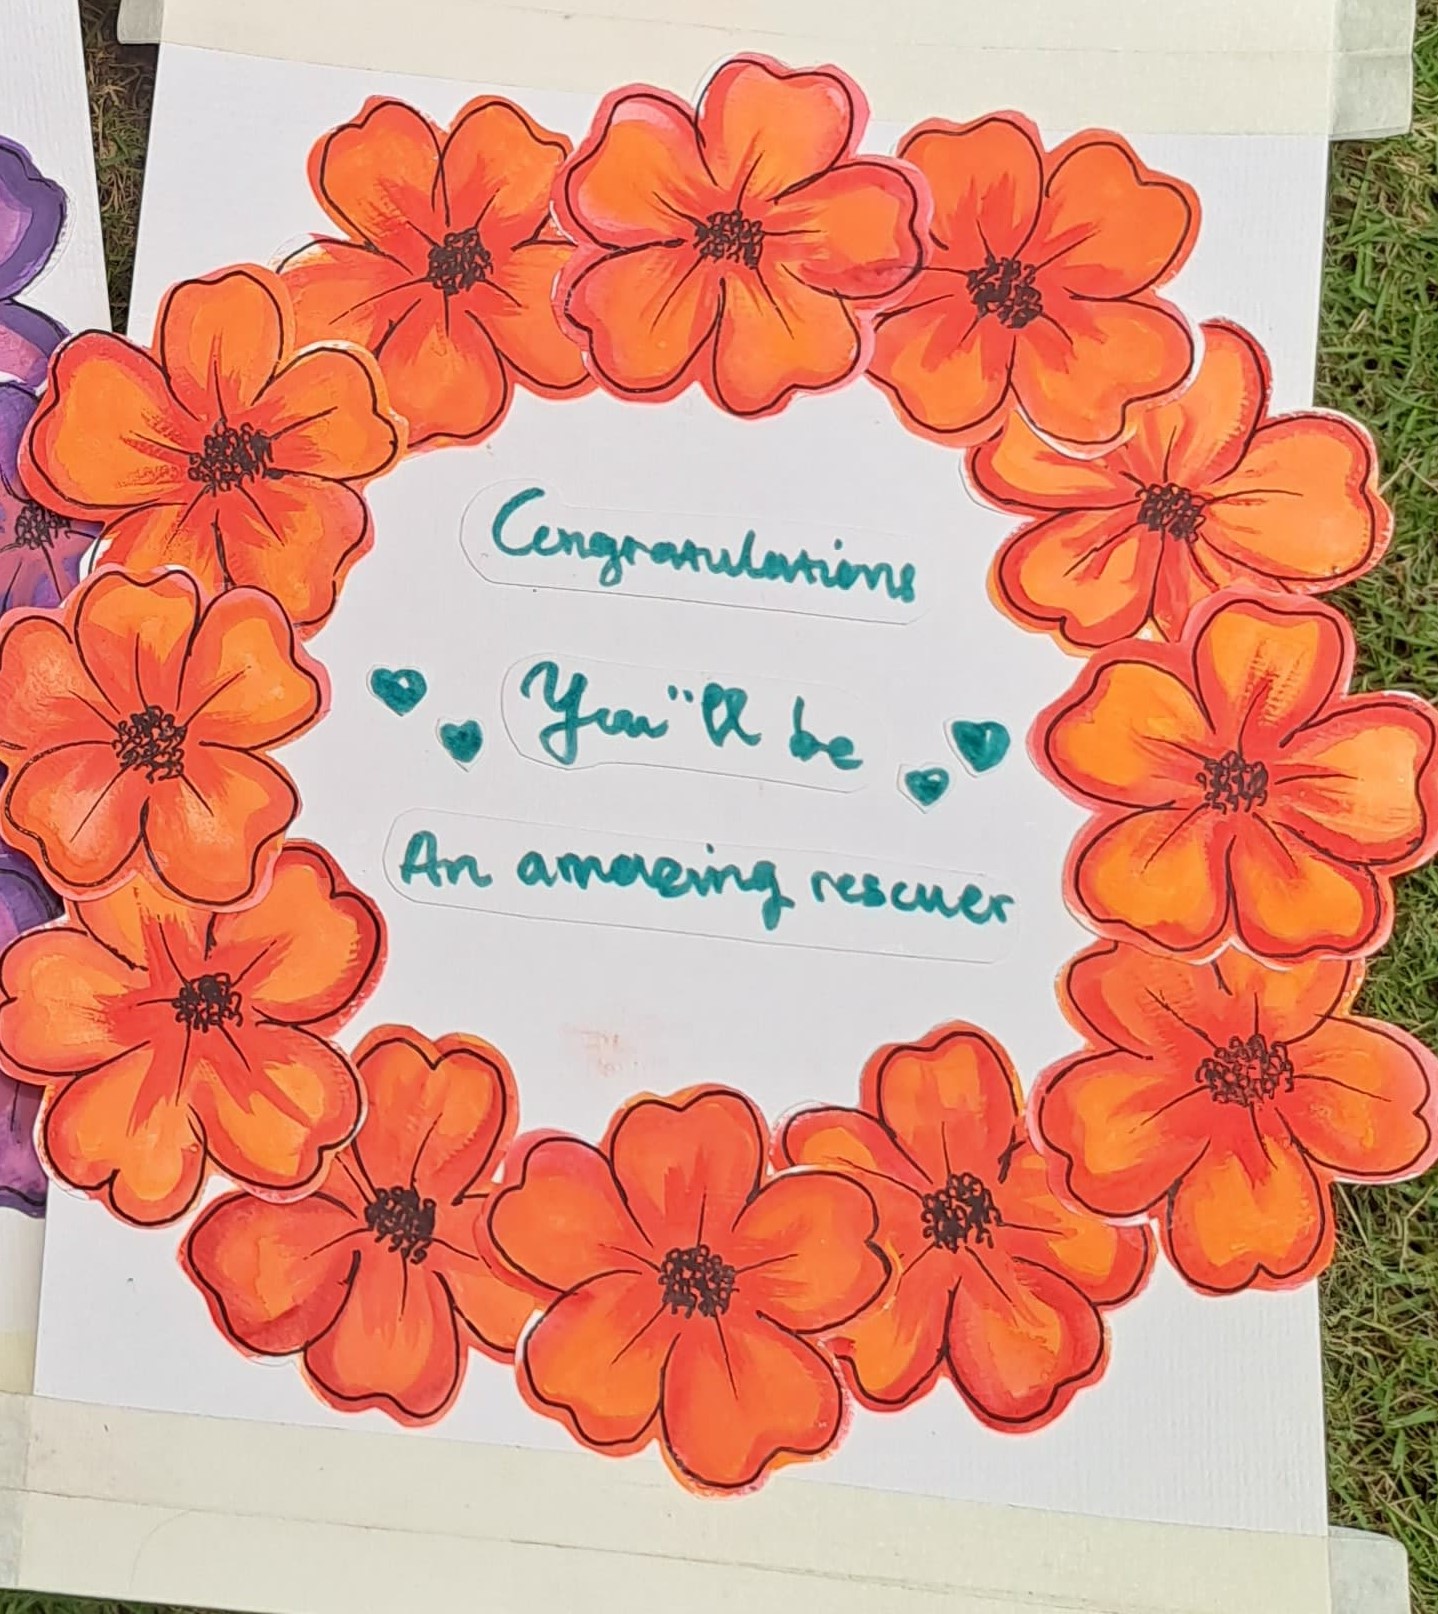 Congratulations
You"ll be
An amazing rescuer